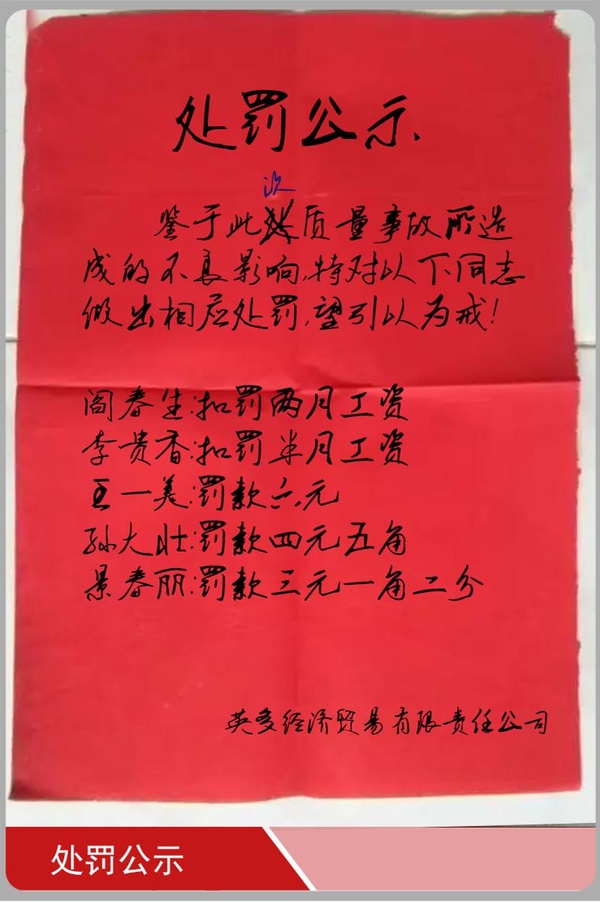 处罚公示
次
鉴于此质量事故所造
成的不良影响,特对以下同志
做出相应处罚,望引以为戒!
阎春生:扣罚两月工资
李贵香:扣罚半月工资
王一美:罚款六元
孙大壮:罚款四元五角
景春丽:罚款三元一角二分
英多经济贸易有限责任公司
处罚公示